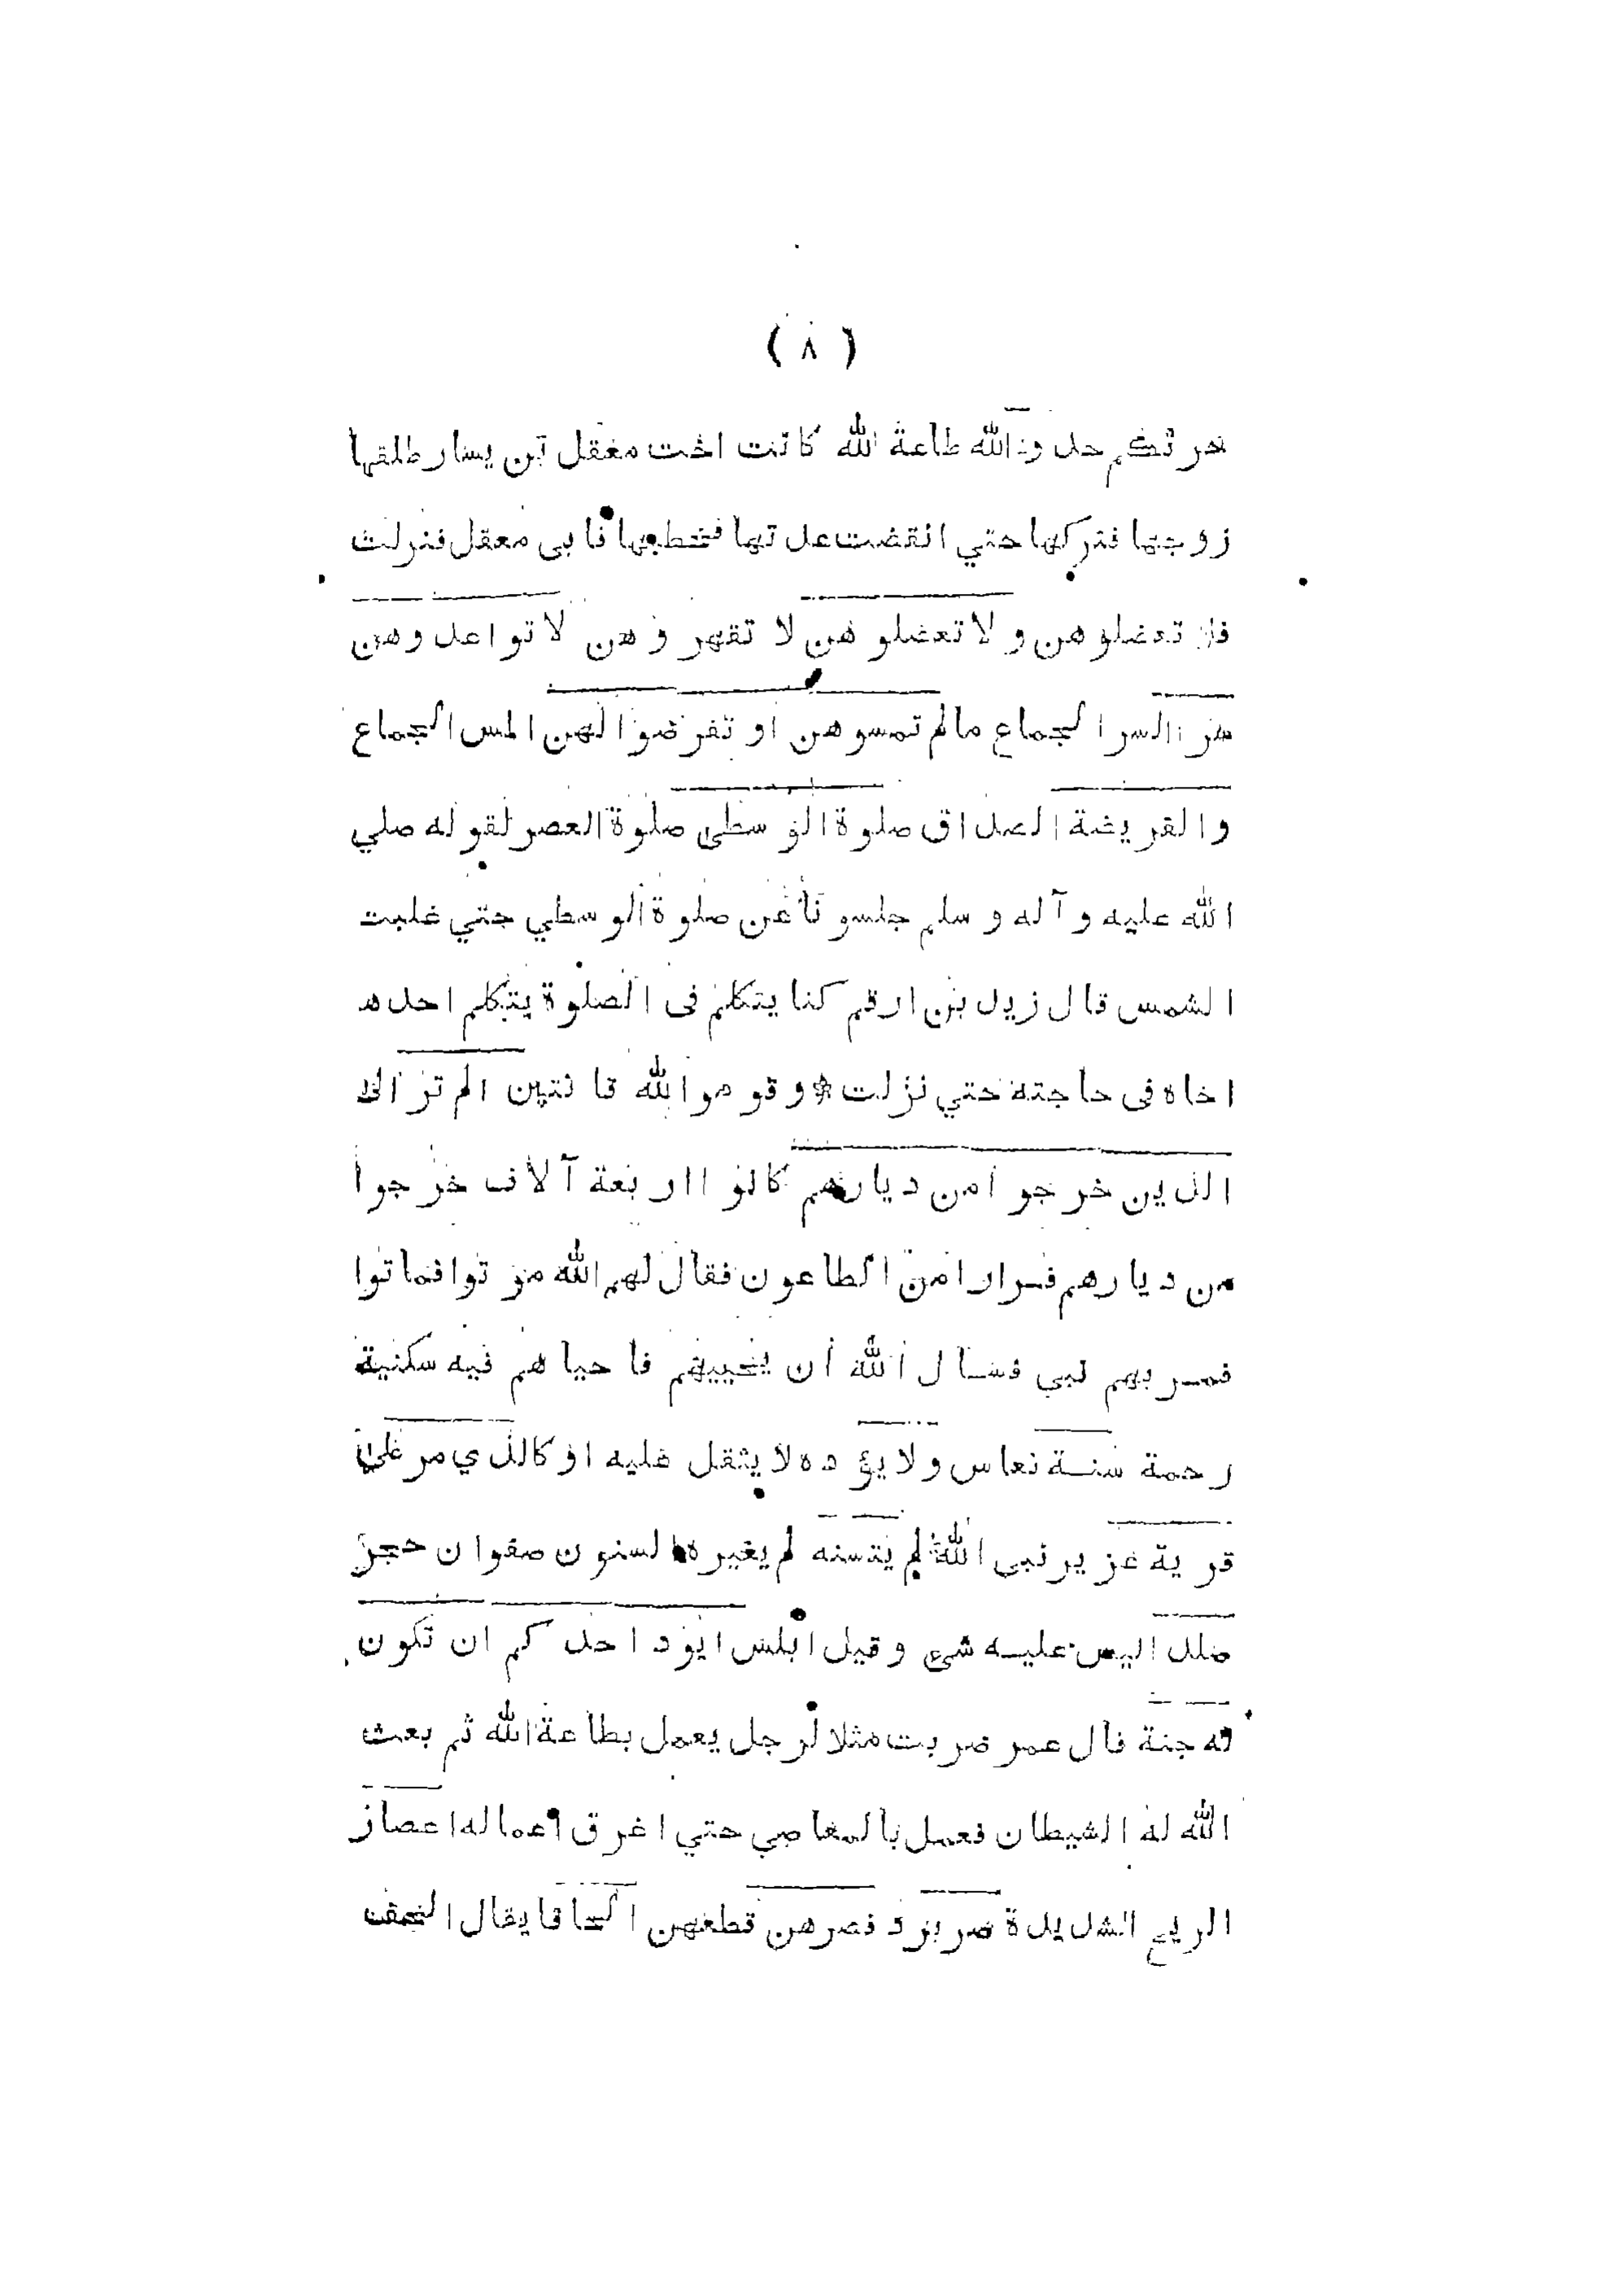 ( ٨ )
حرثكم حدود الله طاعة الله كانت اخت معقل بن يسار طلقها
زوجها فتركها حتي انقضت عدتها فخطبها فابى معقل فنزلت
فلا تعضلوهن ولا تعضلوهن لا تقهروهن لا تواعدوهن
سرا السر الجماع مالم تمسوهن او تفرضوا لهن المس الجماع
والفريضة الصداق صلوة الوسطى صلوة العصر لقوله صلي
الله عليه وآله وسلم حبسونا عن صلوة الوسطي حتي غابت
الشمس قال زيد بن ارقم كنا يتكلم فى الصلوة يتكلم احد هد
اخاه فى حاجته حتي نزلت * وقوموا لله قانتين الم تر الى
الذين خرجوا من ديارهم كانوا اربعة آلاف خرجوا
من ديارهم فرارا من الطاعون فقال لهم الله موتوا فماتوا
فمر بهم نبى فسأل الله ان يحييهم فاحياهم فيه سكنية
رحمة سنة نعاس ولا يؤده لا يثقل عليه او كالذي مر على
قرية عزير نبى الله لم يتسنه لم يغيره السنون صفوان حجر
صلدا ليس عليه شئ وقيل ابلس ايود احدكم ان تكون
له جنة قال عمر ضربت مثلا لرجل يعمل بطاعة الله ثم بعث
الله له الشيطان فعمل بالمعاصي حتي اغرق اعماله اعصار
الريح الشديدة صر برد فصرهن قطعهن الحافا يقال الحف